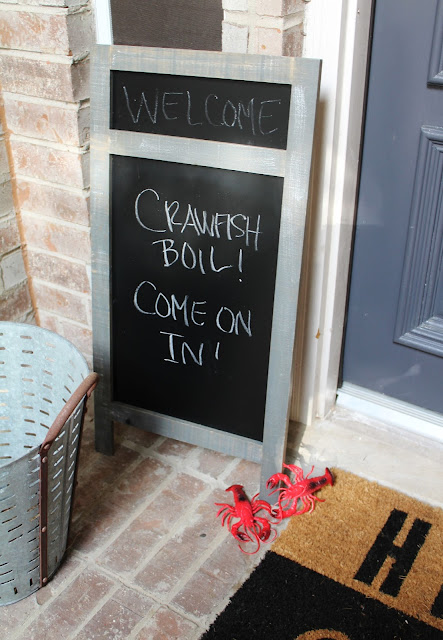 WELCOME
CRAWFISH
BOIL!
COME ON
IN!
H